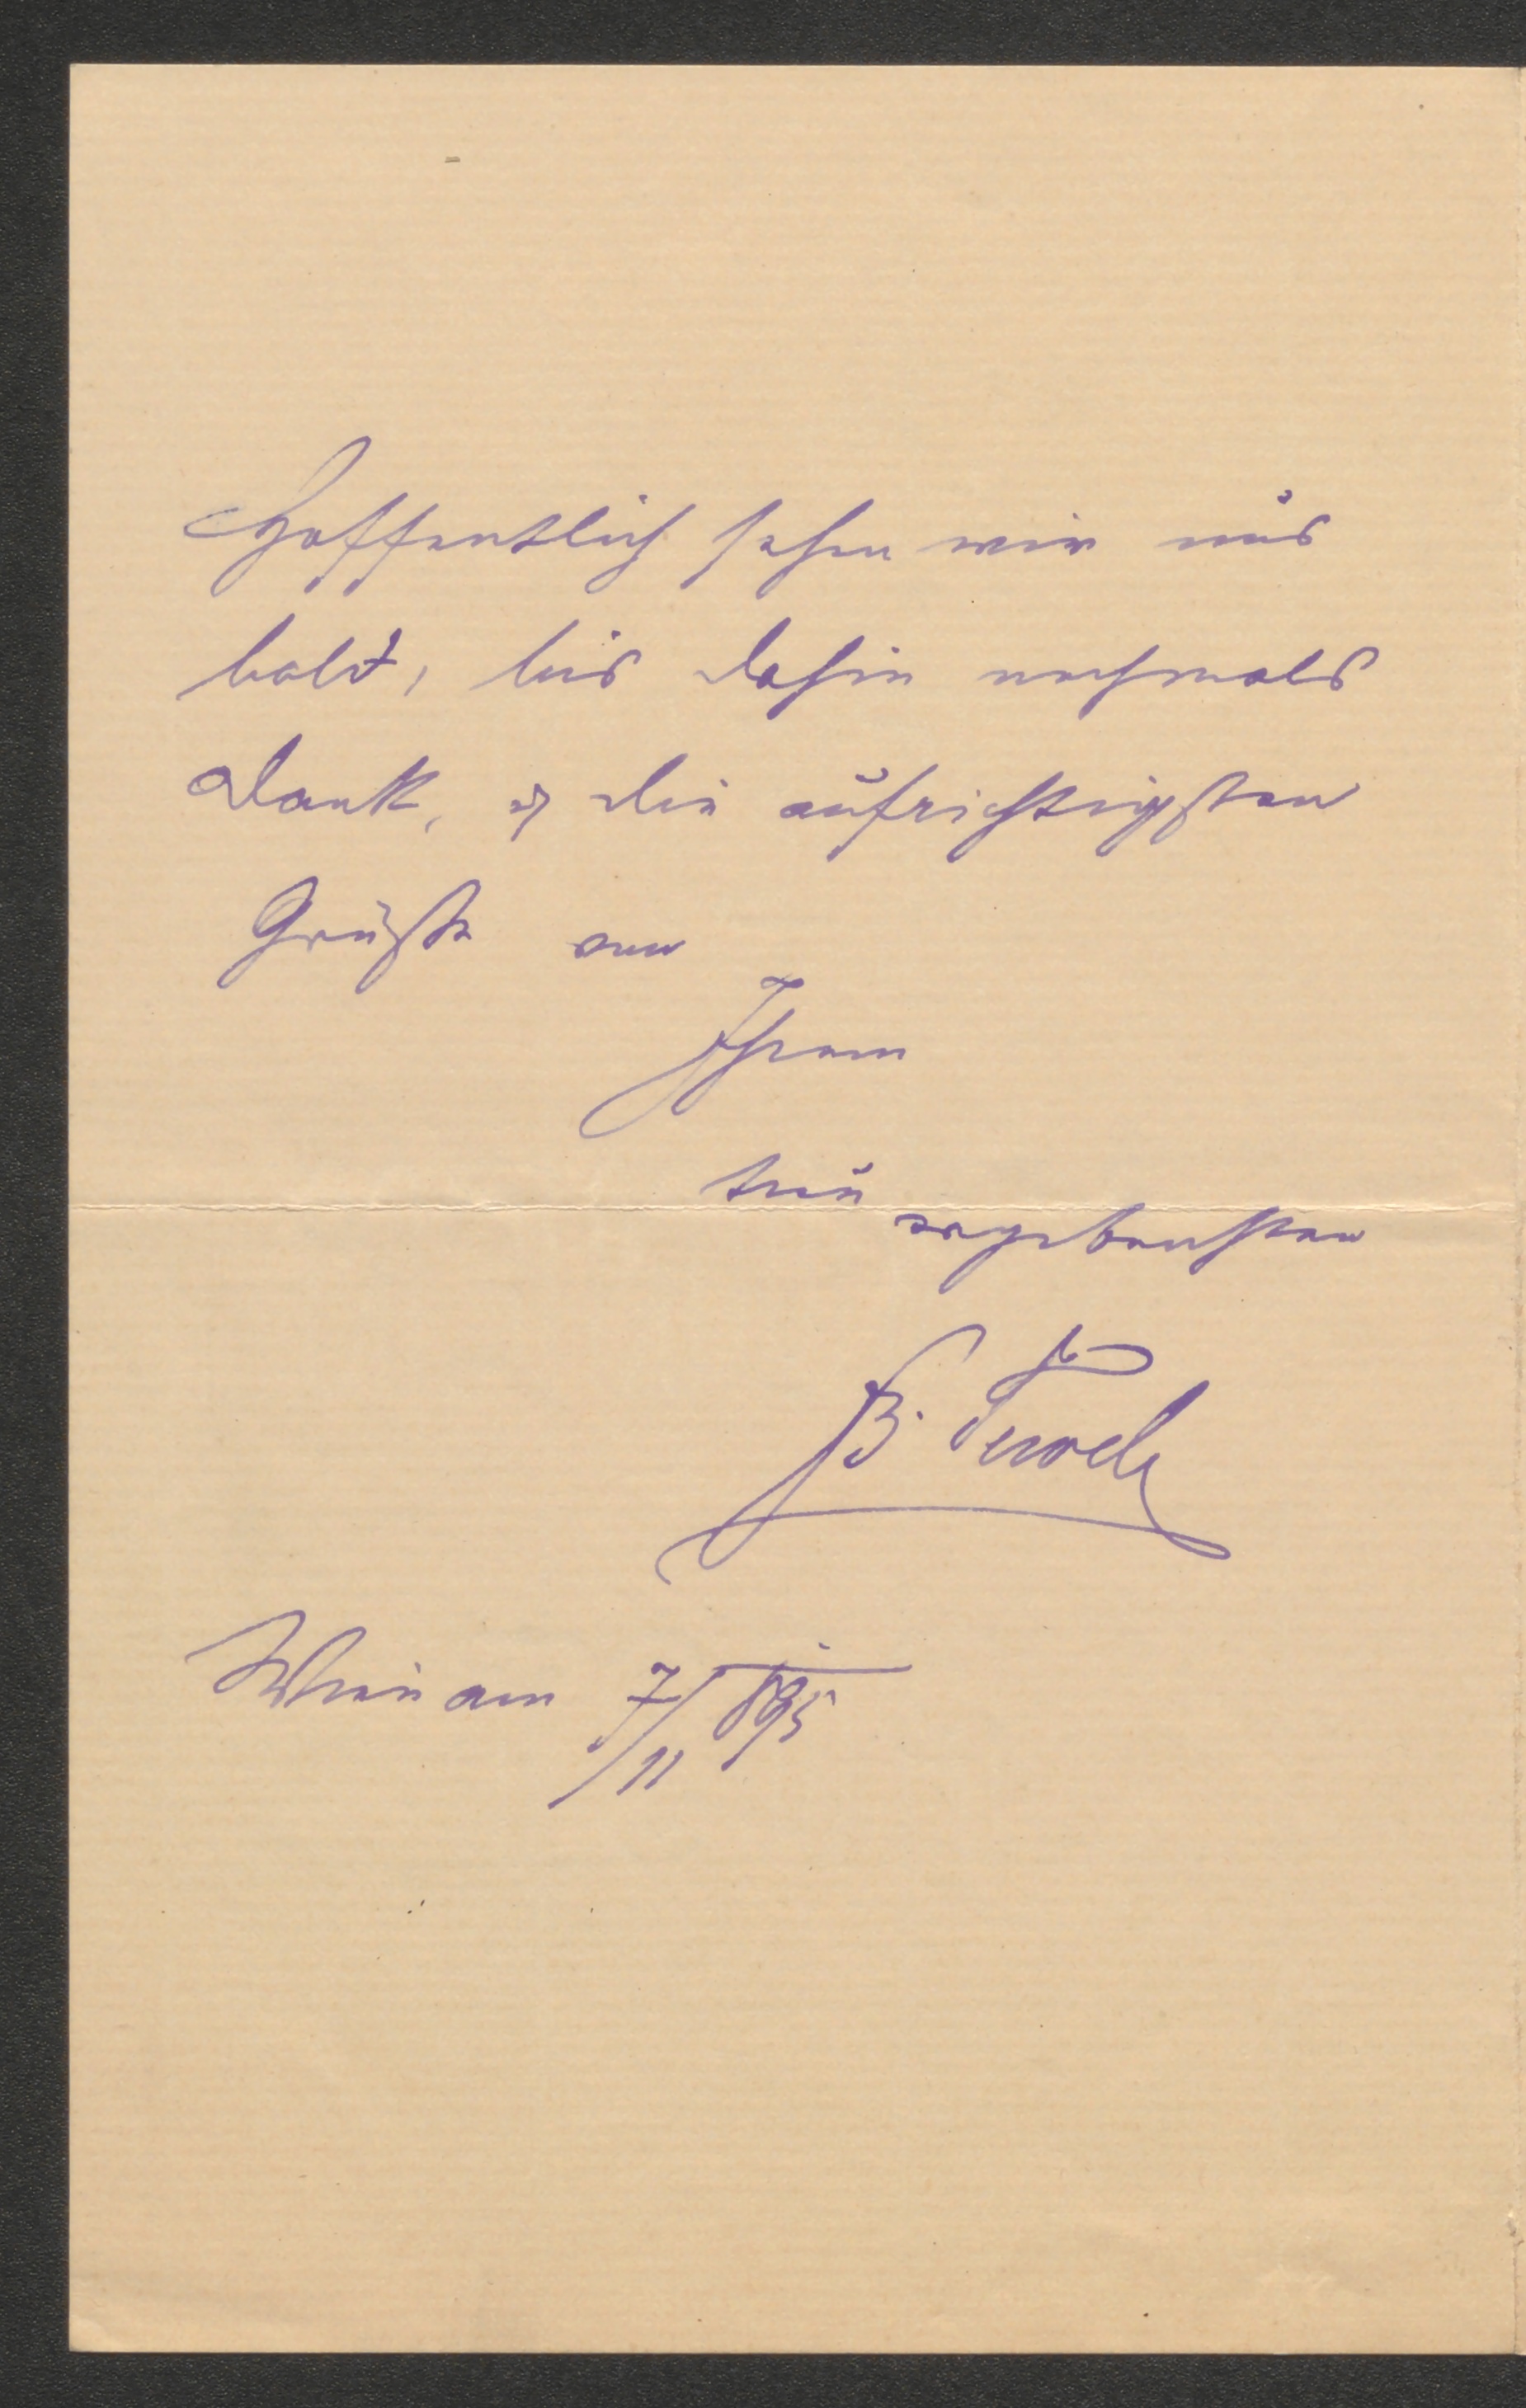 Hoffentlich sehen wir uns
bald, bis dahin nochmals
Dank, & die aufrichtigsten
Grüße von
Ihrem
treu
ergebensten
Wien am 7/11 895